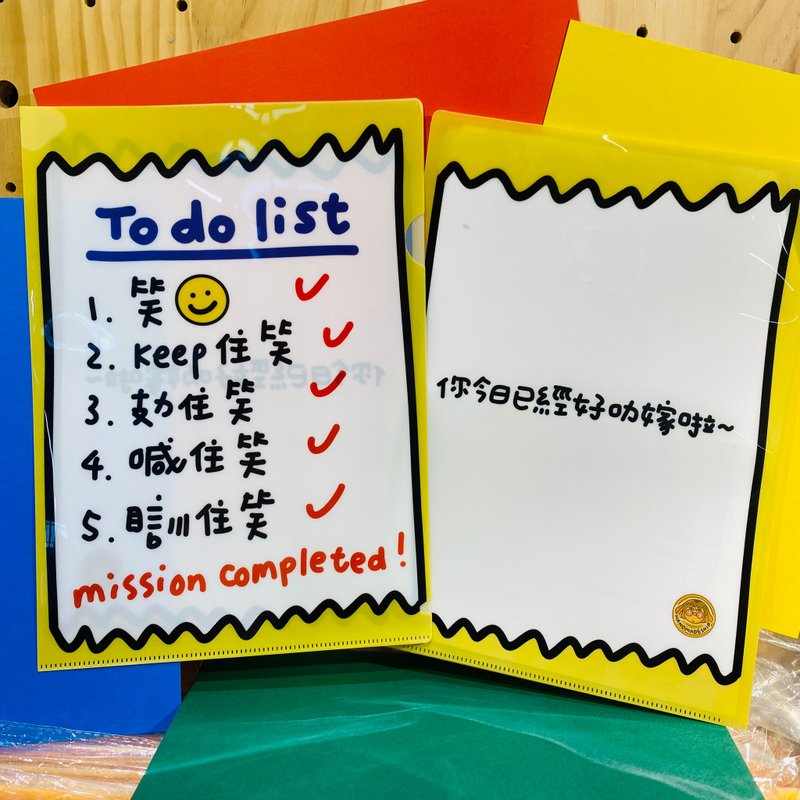 To do list
1. 笑
2. Keep住笑
3. 攰住笑
4. 喊住笑
5. 瞓住笑
mission completed!
你今日已經好叻嫁啦~